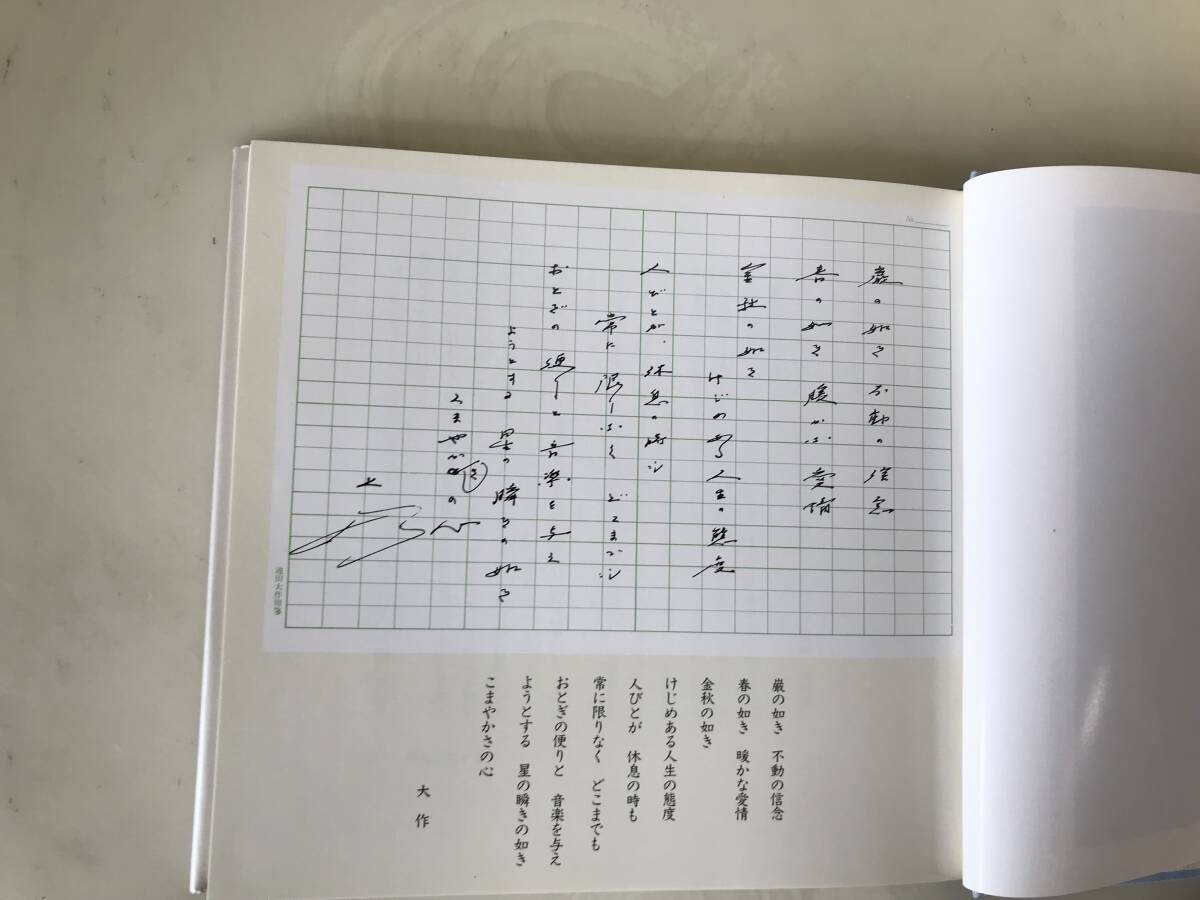 No.
巌の如き 不動の信念
春の如き 暖かな愛情
金秋の如き
けじめある人生の態度
人びとが、休息の時も
常に限りなく どこまでも
おとぎの便りと 音楽を与え
ようとする 星の瞬きの如き
こまやかさの
心
大作
池田大作用箋
巌の如き 不動の信念
春の如き 暖かな愛情
金秋の如き
けじめある人生の態度
人びとが 休息の時も
常に限りなく どこまでも
おとぎの便りと 音楽を与え
ようとする 星の瞬きの如き
こまやかさの心
大作